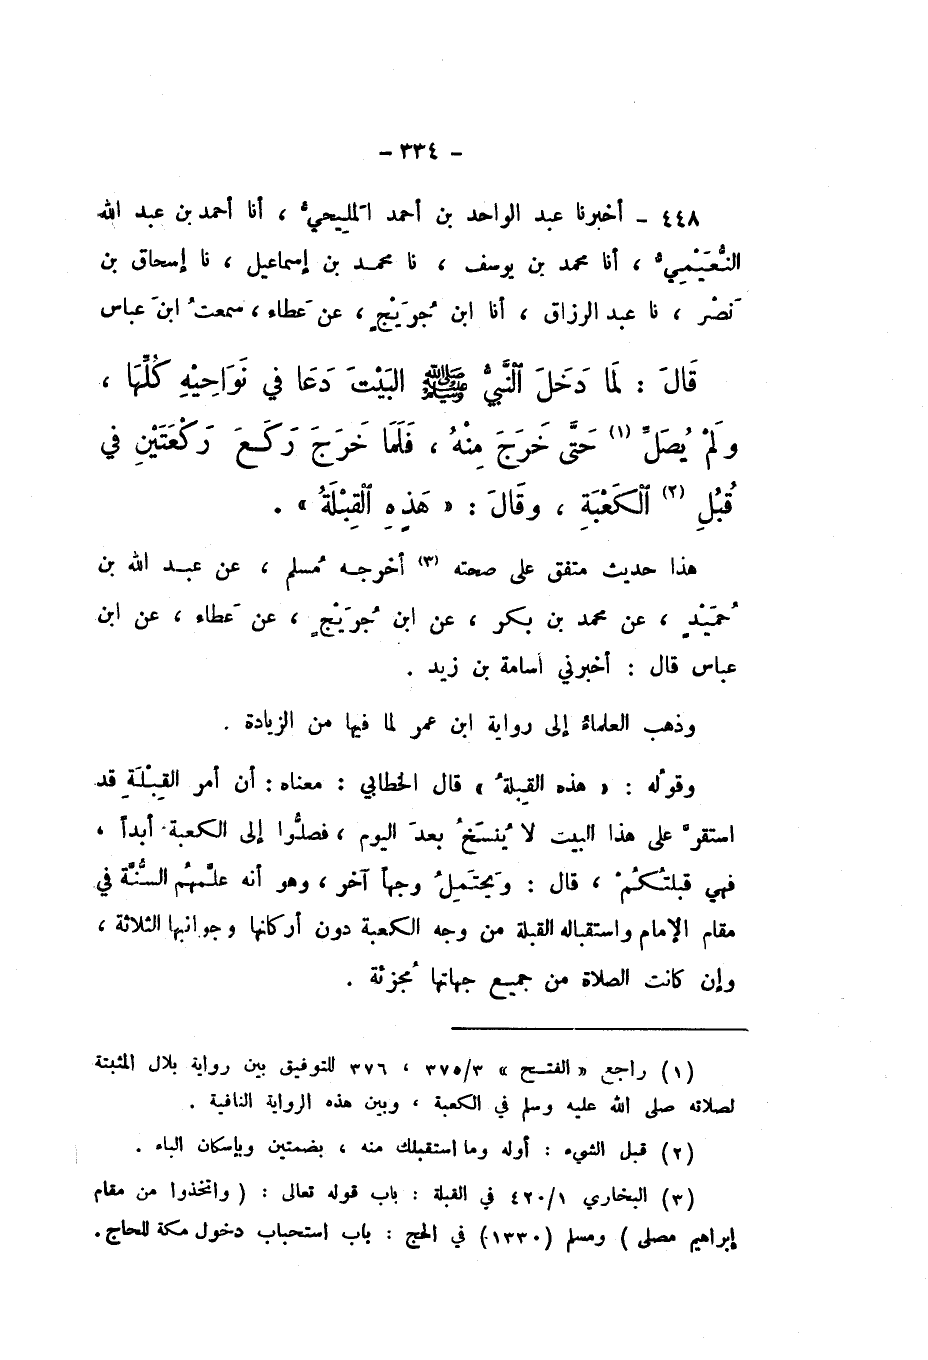 - ٣٣٤ -
٤٤٨ - أخبرنا عبد الواحد بن أحمد المليحيُّ ، أنا أحمد بن عبد الله
النُّعَيْمِيُّ ، أنا محمد بن يوسف ، نا محمد بن إسماعيل ، نا إسحاق بن
نَصْر ، نا عبد الرزاق ، أنا ابن جُرَيْجٍ ، عن عَطاء ، سمعتُ ابنَ عباس
قَالَ : لَمَّا دَخَلَ ٱلنَّبِيُّ ﷺ البَيْتَ دَعَا فِي نَوَاحِيْهِ كُلِّهَا ،
وَلَمْ يُصَلِّ (١) حَتَّى خَرَجَ مِنْهُ ، فَلَمَّا خَرَجَ رَكَعَ رَكْعَتَيْنِ فِي
قُبُلِ (٢) ٱلْكَعْبَةِ ، وقَالَ : « هَذِهِ ٱلقِبْلَةُ » .
هذا حديث متفق على صحته (٣) أخرجه مُسلم ، عن عبد الله بن
حُمَيْدٍ ، عن محمد بن بكر ، عن ابن جُرَيْجٍ ، عن عَطاء ، عن ابن
عباس قال : أخبرني أسامة بن زيد .
وذهب العلماءُ إلى رواية ابن عمر لما فيها من الزيادة .
وقولُه : « هذه القبلةُ » قال الخطابي : معناه : أن أمر القِبْلَةِ قد
استقرَّ على هذا البيت لا يُنسَخُ بعدَ اليوم ، فصلُّوا إلى الكعبة أبداً ،
فهي قبلتُكُمْ ، قال : وَيحتَمِلُ وجهاً آخر ، وهو أنه علَّمهُم السُّنَّة في
مقام الإمام واستقباله القبلة من وجه الكعبة دون أركانها وجوانبها الثلاثة ،
وإن كانت الصلاة من جميع جهاتها مُجزئة .
(١) راجع « الفتح » ٣/٣٧٥ ، ٣٧٦ للتوفيق بين رواية بلال المثبتة
لصلاته صلى الله عليه وسلم في الكعبة ، وبين هذه الرواية النافية .
(٢) قبل الشيء : أوله وما استقبلك منه ، بضمتين وبإسكان الباء .
(٣) البخاري ١/٤٢٠ في القبلة : باب قوله تعالى : ( واتخذوا من مقام
إبراهيم مصلى ) ومسلم (١٣٣٠) في الحج : باب استحباب دخول مكة للحاج .